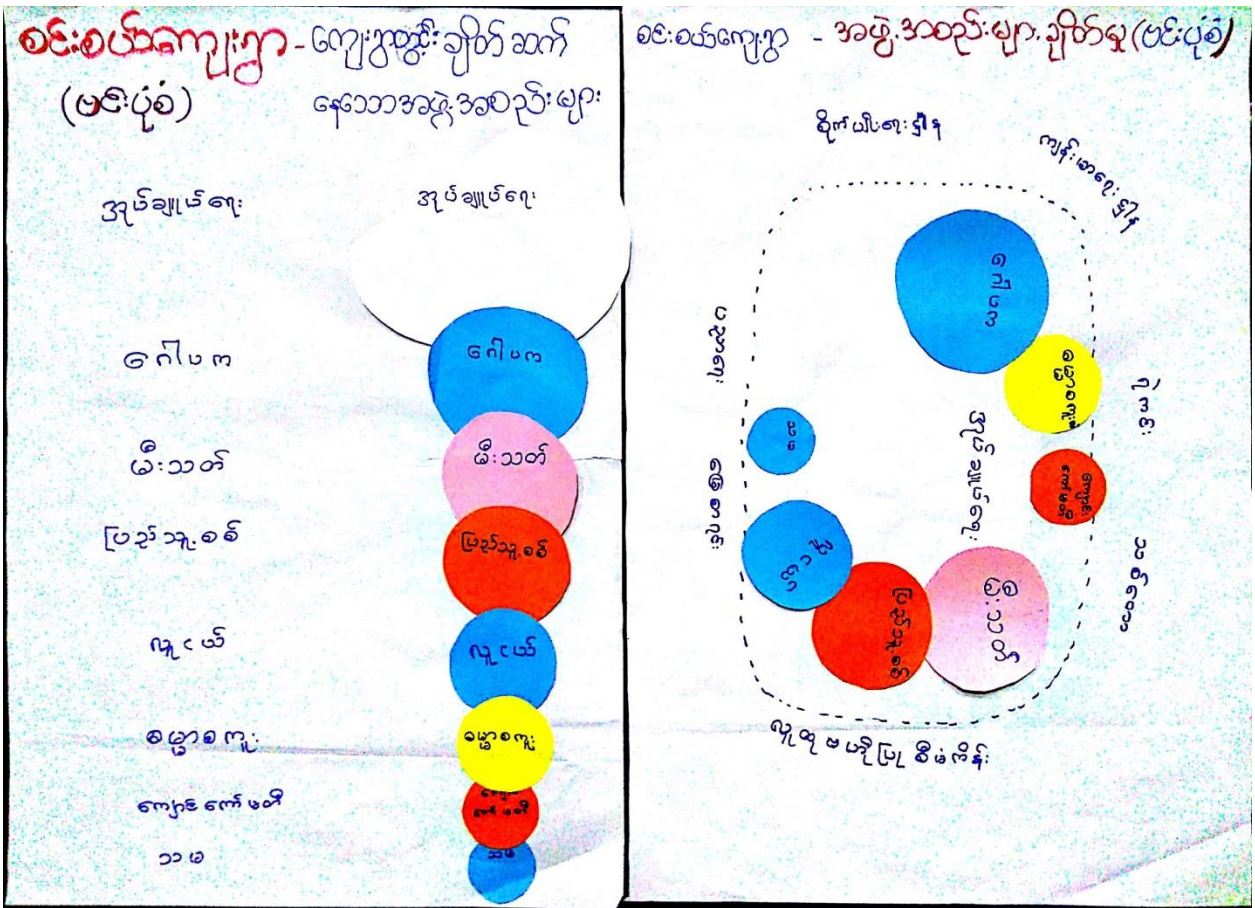 စင်းစယ်ကျေးရွာ - ကျေးရွာတွင်း ချိတ်ဆက်
(ဗင်းပုံစံ) နေသောအဖွဲ့အစည်းများ
အုပ်ချုပ်ရေး
အုပ်ချုပ်ရေး
ဂေါပက
ဂေါပက
မီးသတ်
မီးသတ်
ပြည်သူ့စစ်
ပြည်သူ့စစ်
လူငယ်
လူငယ်
ဓမ္မာစကူး
ဓမ္မာစကူး
ကျောင်းကော်မတီ
ကော်မတီ
သမ
သမ
စင်းစယ်ကျေးရွာ - အဖွဲ့အစည်းများချိတ်မှု (ဗင်းပုံစံ)
စိုက်ပျိုးရေးဌာန
ကျန်းမာရေးဌာန
ဂေါပက
ပညာရေး
ဓမ္မာစကူး
သမ
အုပ်ချုပ်ရေး
ကျောင်းကော်မတီ
ရွှေစာရင်း
သစ်တော
လူငယ်
ပြည်သူ့စစ်
မီးသတ်
လူထုဗဟိုပြုစီမံကိန်း